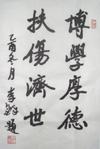 博學厚德
扶傷濟世
乙酉冬月